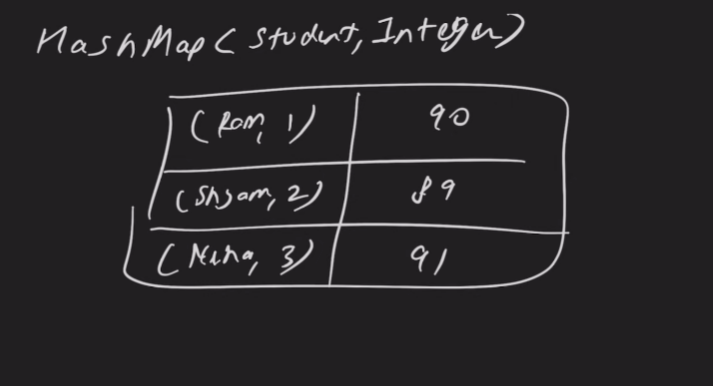 HashMap(Student, Integer)
(Ram, 1) 90
(Shyam, 2) 89
(Neha, 3) 91